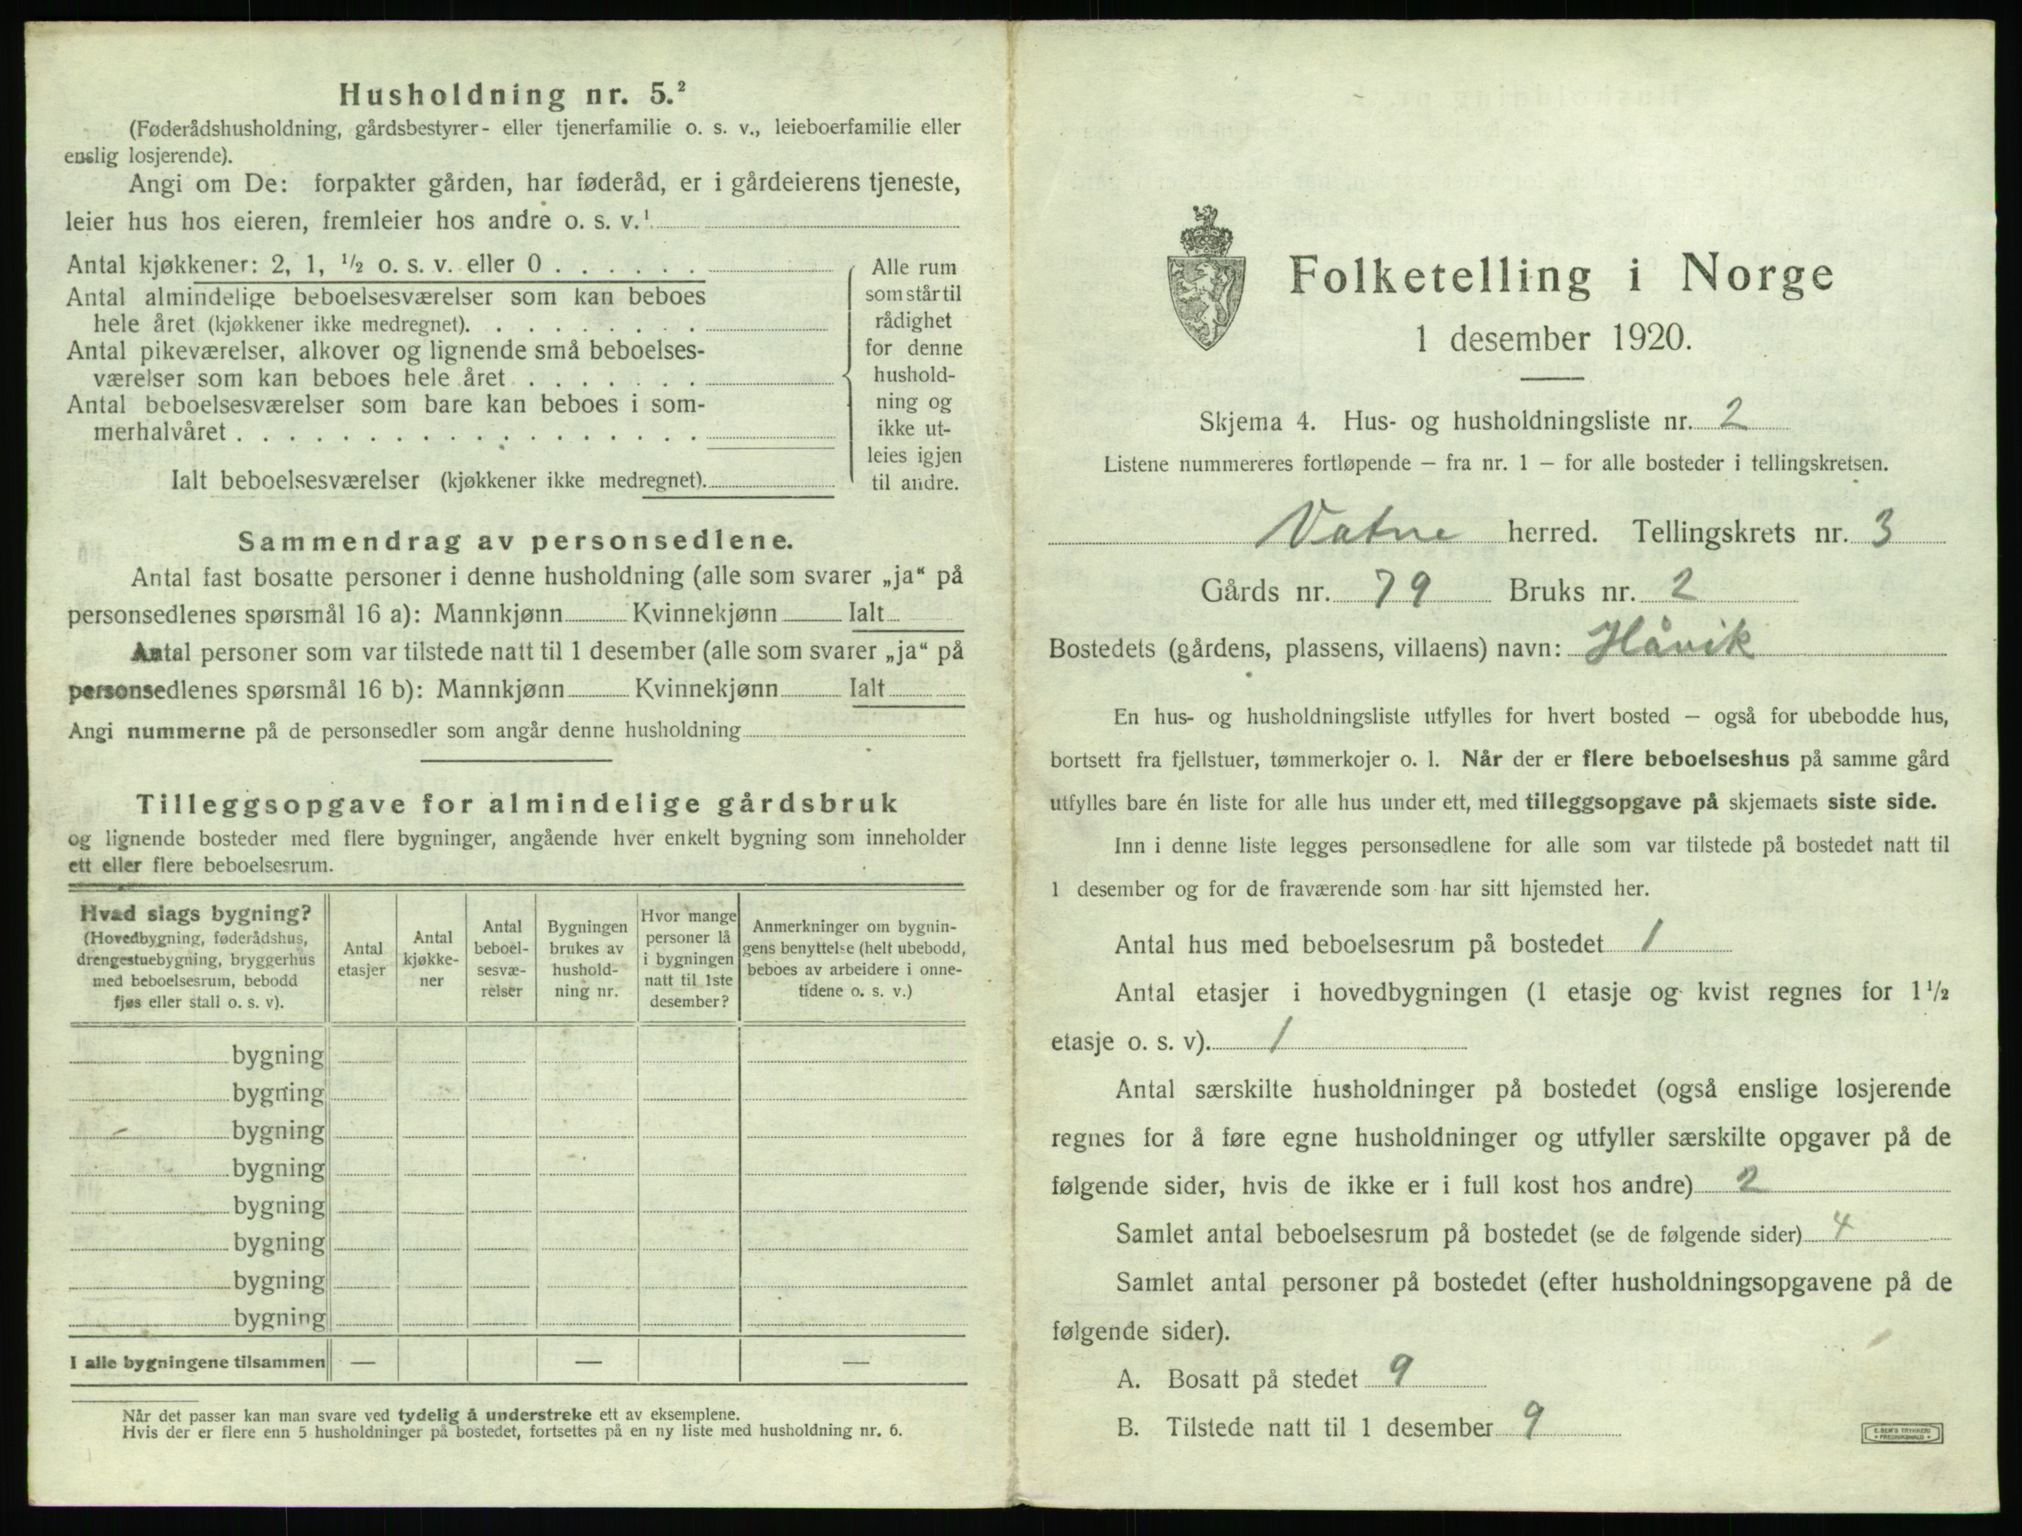 Husholdning nr. 5.²
(Føderådshusholdning, gårdsbestyrer- eller tjenerfamilie o. s. v., leieboerfamilie eller
enslig losjerende).
Angi om De: forpakter gården, har føderåd, er i gårdeierens tjeneste,
leier hus hos eieren, fremleier hos andre o. s. v.¹
Antal kjøkkener: 2, 1, ½ o. s. v. eller 0 . . . . . .
Antal almindelige beboelsesværelser som kan beboes
hele året (kjøkkener ikke medregnet). . . . . . . . .
Antal pikeværelser, alkover og lignende små beboelses-
værelser som kan beboes hele året . . . . . . .
Antal beboelsesværelser som bare kan beboes i som-
merhalvåret . . . . . . . . . . . . . . . . . .
Ialt beboelsesværelser (kjøkkener ikke medregnet).
Alle rum
som står til
rådighet
for denne
hushold-
ning og
ikke ut-
leies igjen
til andre.
Sammendrag av personsedlene.
Antal fast bosatte personer i denne husholdning (alle som svarer „ja“ på
personsedlenes spørsmål 16 a): Mannkjønn Kvinnekjønn Ialt
Antal personer som var tilstede natt til 1 desember (alle som svarer „ja“ på
personsedlenes spørsmål 16 b): Mannkjønn Kvinnekjønn Ialt
Angi nummerne på de personsedler som angår denne husholdning
Tilleggsopgave for almindelige gårdsbruk
og lignende bosteder med flere bygninger, angående hver enkelt bygning som inneholder
ett eller flere beboelsesrum.
Hvad slags bygning?
(Hovedbygning, føderådshus,
drengestuebygning, bryggerhus
med beboelsesrum, bebodd
fjøs eller stall o. s. v).
Antal
etasjer
Antal
kjøkke-
ner
Antal
beboel-
sesvæ-
relser
Bygningen
brukes av
hushold-
ning nr.
Hvor mange
personer lå
i bygningen
natt til 1ste
desember?
Anmerkninger om bygnin-
gens benyttelse (helt ubebodd,
beboes av arbeidere i onne-
tidene o. s. v.)
bygning
bygning
bygning
bygning
bygning
bygning
bygning
bygning
I alle bygningene tilsammen — — —
Når det passer kan man svare ved tydelig å understreke ett av eksemplene.
Hvis der er flere enn 5 husholdninger på bostedet, fortsettes på en ny liste med husholdning nr. 6.
Folketelling i Norge
1 desember 1920.
Skjema 4. Hus- og husholdningsliste nr. 2
Listene nummereres fortløpende — fra nr. 1 — for alle bosteder i tellingskretsen.
Vatne herred. Tellingskrets nr. 3
Gårds nr. 79 Bruks nr. 2
Bostedets (gårdens, plassens, villaens) navn: Håvik
En hus- og husholdningsliste utfylles for hvert bosted — også for ubebodde hus,
bortsett fra fjellstuer, tømmerkojer o. l. Når der er flere beboelseshus på samme gård
utfylles bare én liste for alle hus under ett, med tilleggsopgave på skjemaets siste side.
Inn i denne liste legges personsedlene for alle som var tilstede på bostedet natt til
1 desember og for de fraværende som har sitt hjemsted her.
Antal hus med beboelsesrum på bostedet 1
Antal etasjer i hovedbygningen (1 etasje og kvist regnes for 1½
etasje o. s. v). 1
Antal særskilte husholdninger på bostedet (også enslige losjerende
regnes for å føre egne husholdninger og utfyller særskilte opgaver på de
følgende sider, hvis de ikke er i full kost hos andre) 2
Samlet antal beboelsesrum på bostedet (se de følgende sider) 4
Samlet antal personer på bostedet (efter husholdningsopgavene på de
følgende sider).
A. Bosatt på stedet 9
B. Tilstede natt til 1 desember 9